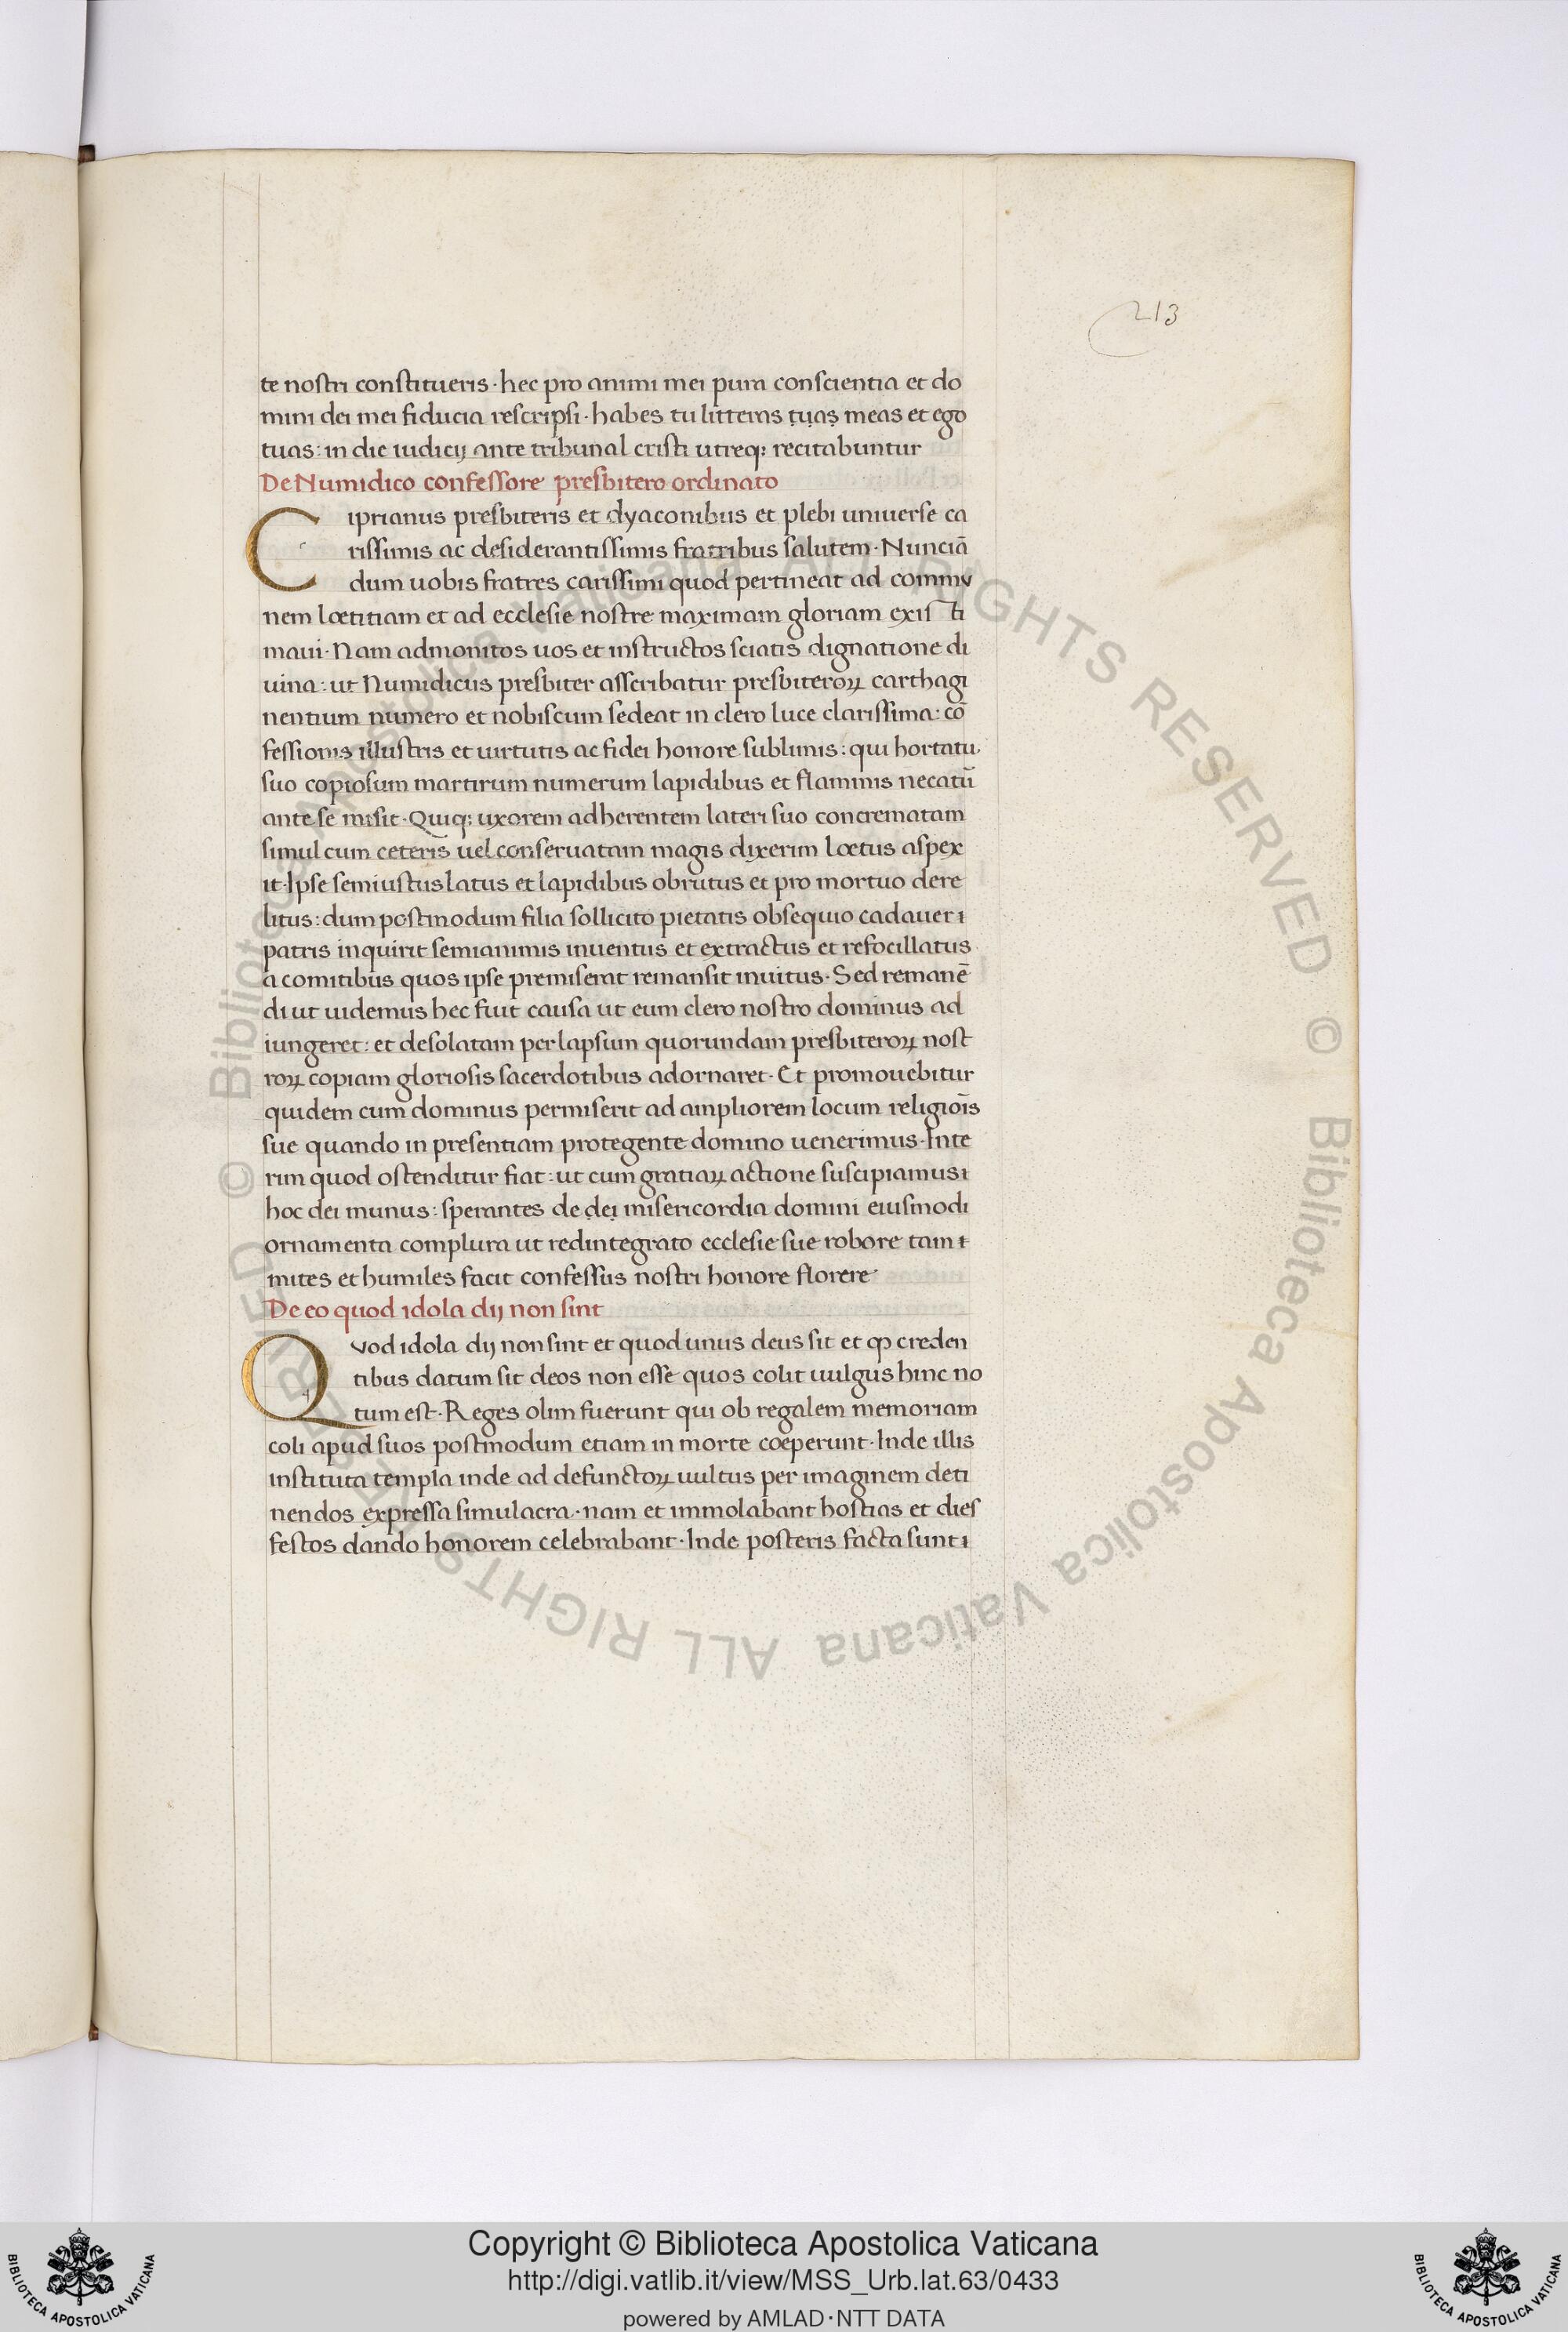 213
te nostri constitueris · hec pro animi mei pura conscientia et do
mini dei mei fiducia rescripsi · habes tu litteras tuas meas et ego
tuas : in die iudicij ante tribunal cristi utreqꝫ recitabuntur
De Numidico confessore presbitero ordinato
Ciprianus presbiteris et dyaconibus et plebi uniuerse ca
rissimis ac desiderantissimis fratribus salutem · Nunciā
dum uobis fratres carissimi quod pertineat ad commv
nem lœtitiam et ad ecclesie nostre maximam gloriam exis ti
maui · Nam admonitos uos et instructos sciatis dignatione di
uina : ut Numidicus presbiter asscribatur presbiteroꝝ carthagi
nentium numero et nobiscum sedeat in clero luce clarissima : cō
fessionis illustris et uirtutis ac fidei honore sublimis : qui hortatu
suo copiosum martirum numerum lapidibus et flammis necatū
ante se misit · Quiqꝫ uxorem adherentem lateri suo concrematam
simul cum ceteris uel conseruatam magis dixerim lœtus aspex
it · Ipse semiustus latus et lapidibus obrutus et pro mortuo dere
litus : dum postmodum filia sollicito pietatis obsequio cadauer ı
patris inquirit semianimis inuentus et extractus et refocillatus
a comitibus quos ipse premiserat remansit inuitus · Sed remanē
di ut uidemus hec fuit causa ut eum clero nostro dominus ad
iungeret : et desolatam per lapsum quorundam presbiteroꝝ nost
roꝝ copiam gloriosis sacerdotibus adornaret · Et promouebitur
quidem cum dominus permiserit ad ampliorem locum religioīs
sue quando in presentiam protegente domino uenerimus · Inte
rim quod ostenditur fiat : ut cum gratiaꝝ actione suscipiamus ı
hoc dei munus : sperantes de dei misericordia domini eiusmodi
ornamenta complura ut redintegrato ecclesie sue robore tam ı
mites et humiles facit confessus nostri honore florere
De eo quod idola dij non sint
Qvod idola dij non sint et quod unus deus sit et ꝙ creden
tibus datum sit deos non esse quos colit uulgus hinc no
tum est · Reges olim fuerunt qui ob regalem memoriam
coli apud suos postmodum etiam in morte coeperunt · Inde illis
instituta templa inde ad defunctoꝝ uultus per imaginem deti
nendos expressa simulacra · nam et immolabant hostias et dies
festos dando honorem celebrabant · Inde posteris facta sunt ı
© Biblioteca Apostolica Vaticana ALL RIGHTS RESERVED © Biblioteca Apostolica Vaticana ALL RIGHTS RESERVED
BIBLIOTECA APOSTOLICA VATICANA
Copyright © Biblioteca Apostolica Vaticana
http://digi.vatlib.it/view/MSS_Urb.lat.63/0433
powered by AMLAD·NTT DATA
BIBLIOTECA APOSTOLICA VATICANA